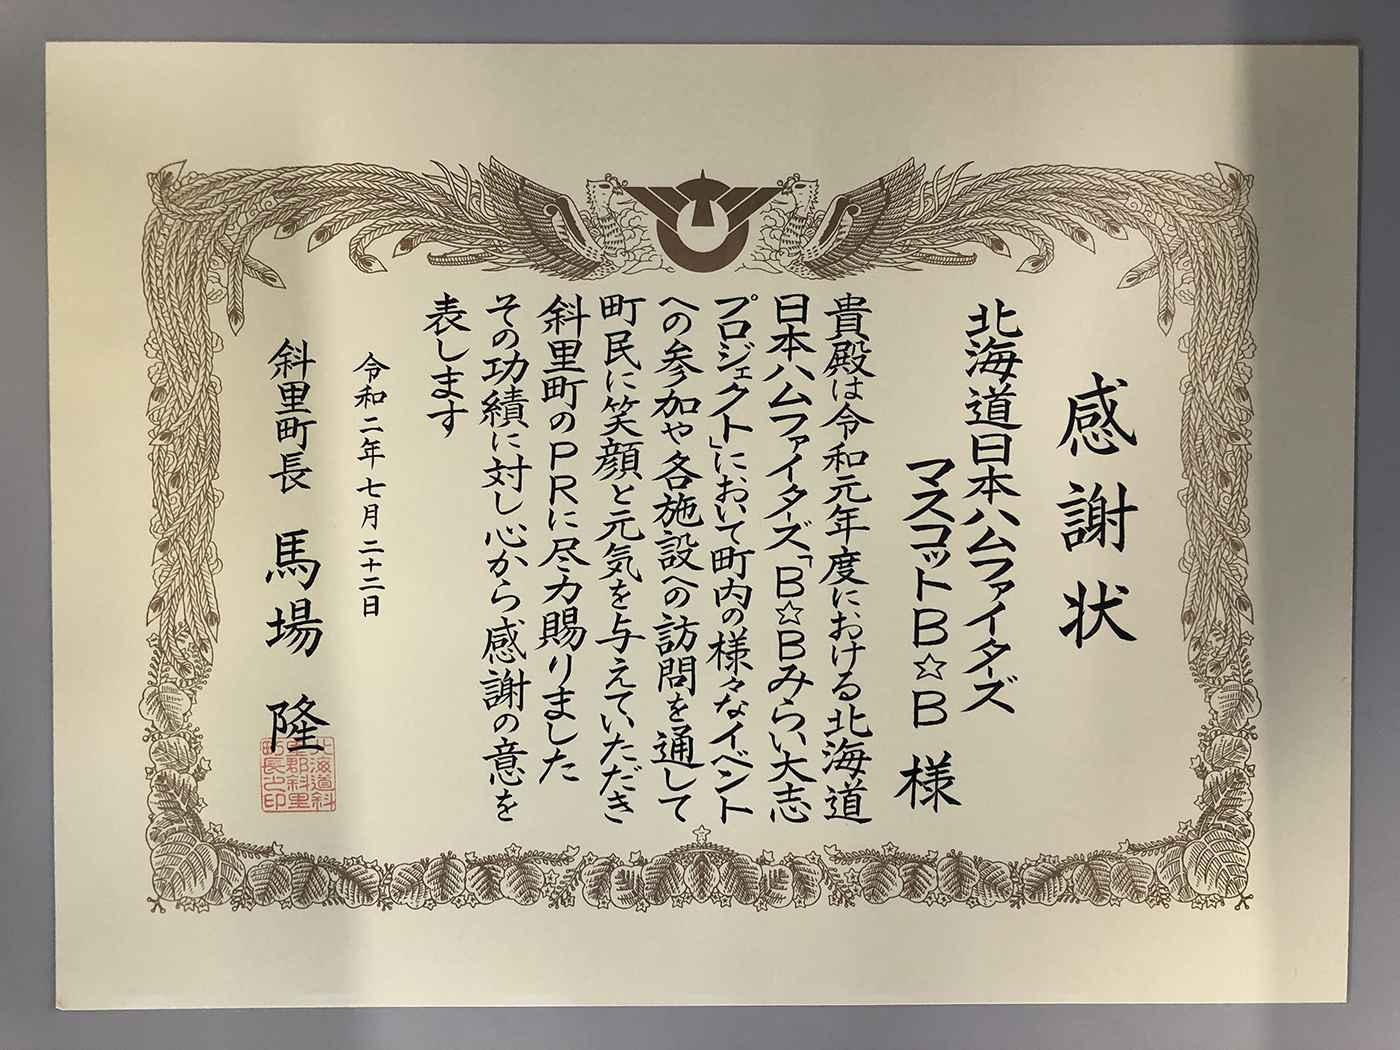 感謝状
北海道日本ハムファイターズ
マスコットB☆B 様
貴殿は令和元年度における北海道
日本ハムファイターズ「B☆Bみらい大志
プロジェクト」において町内の様々なイベント
への参加や各施設への訪問を通して
町民に笑顔と元気を与えていただき
斜里町のPRに尽力賜りました
その功績に対し心から感謝の意を
表します
令和二年七月二十二日
斜里町長 馬場 隆
北海道斜
里郡斜里
町長之印